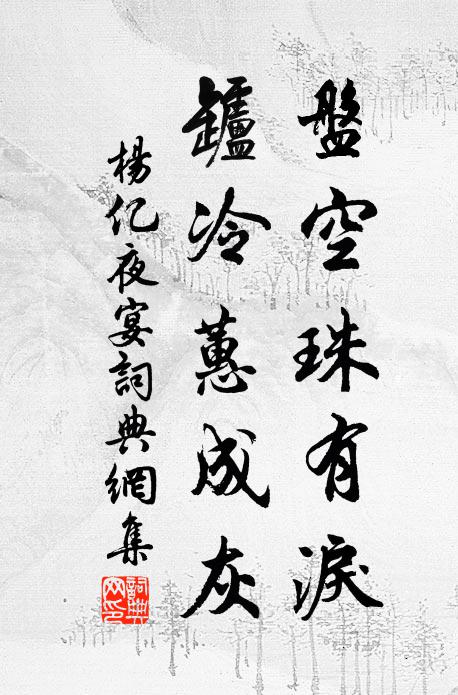 盤空珠有淚
鑪冷蕙成灰
楊亿夜宴詞典網集
詞典
网印